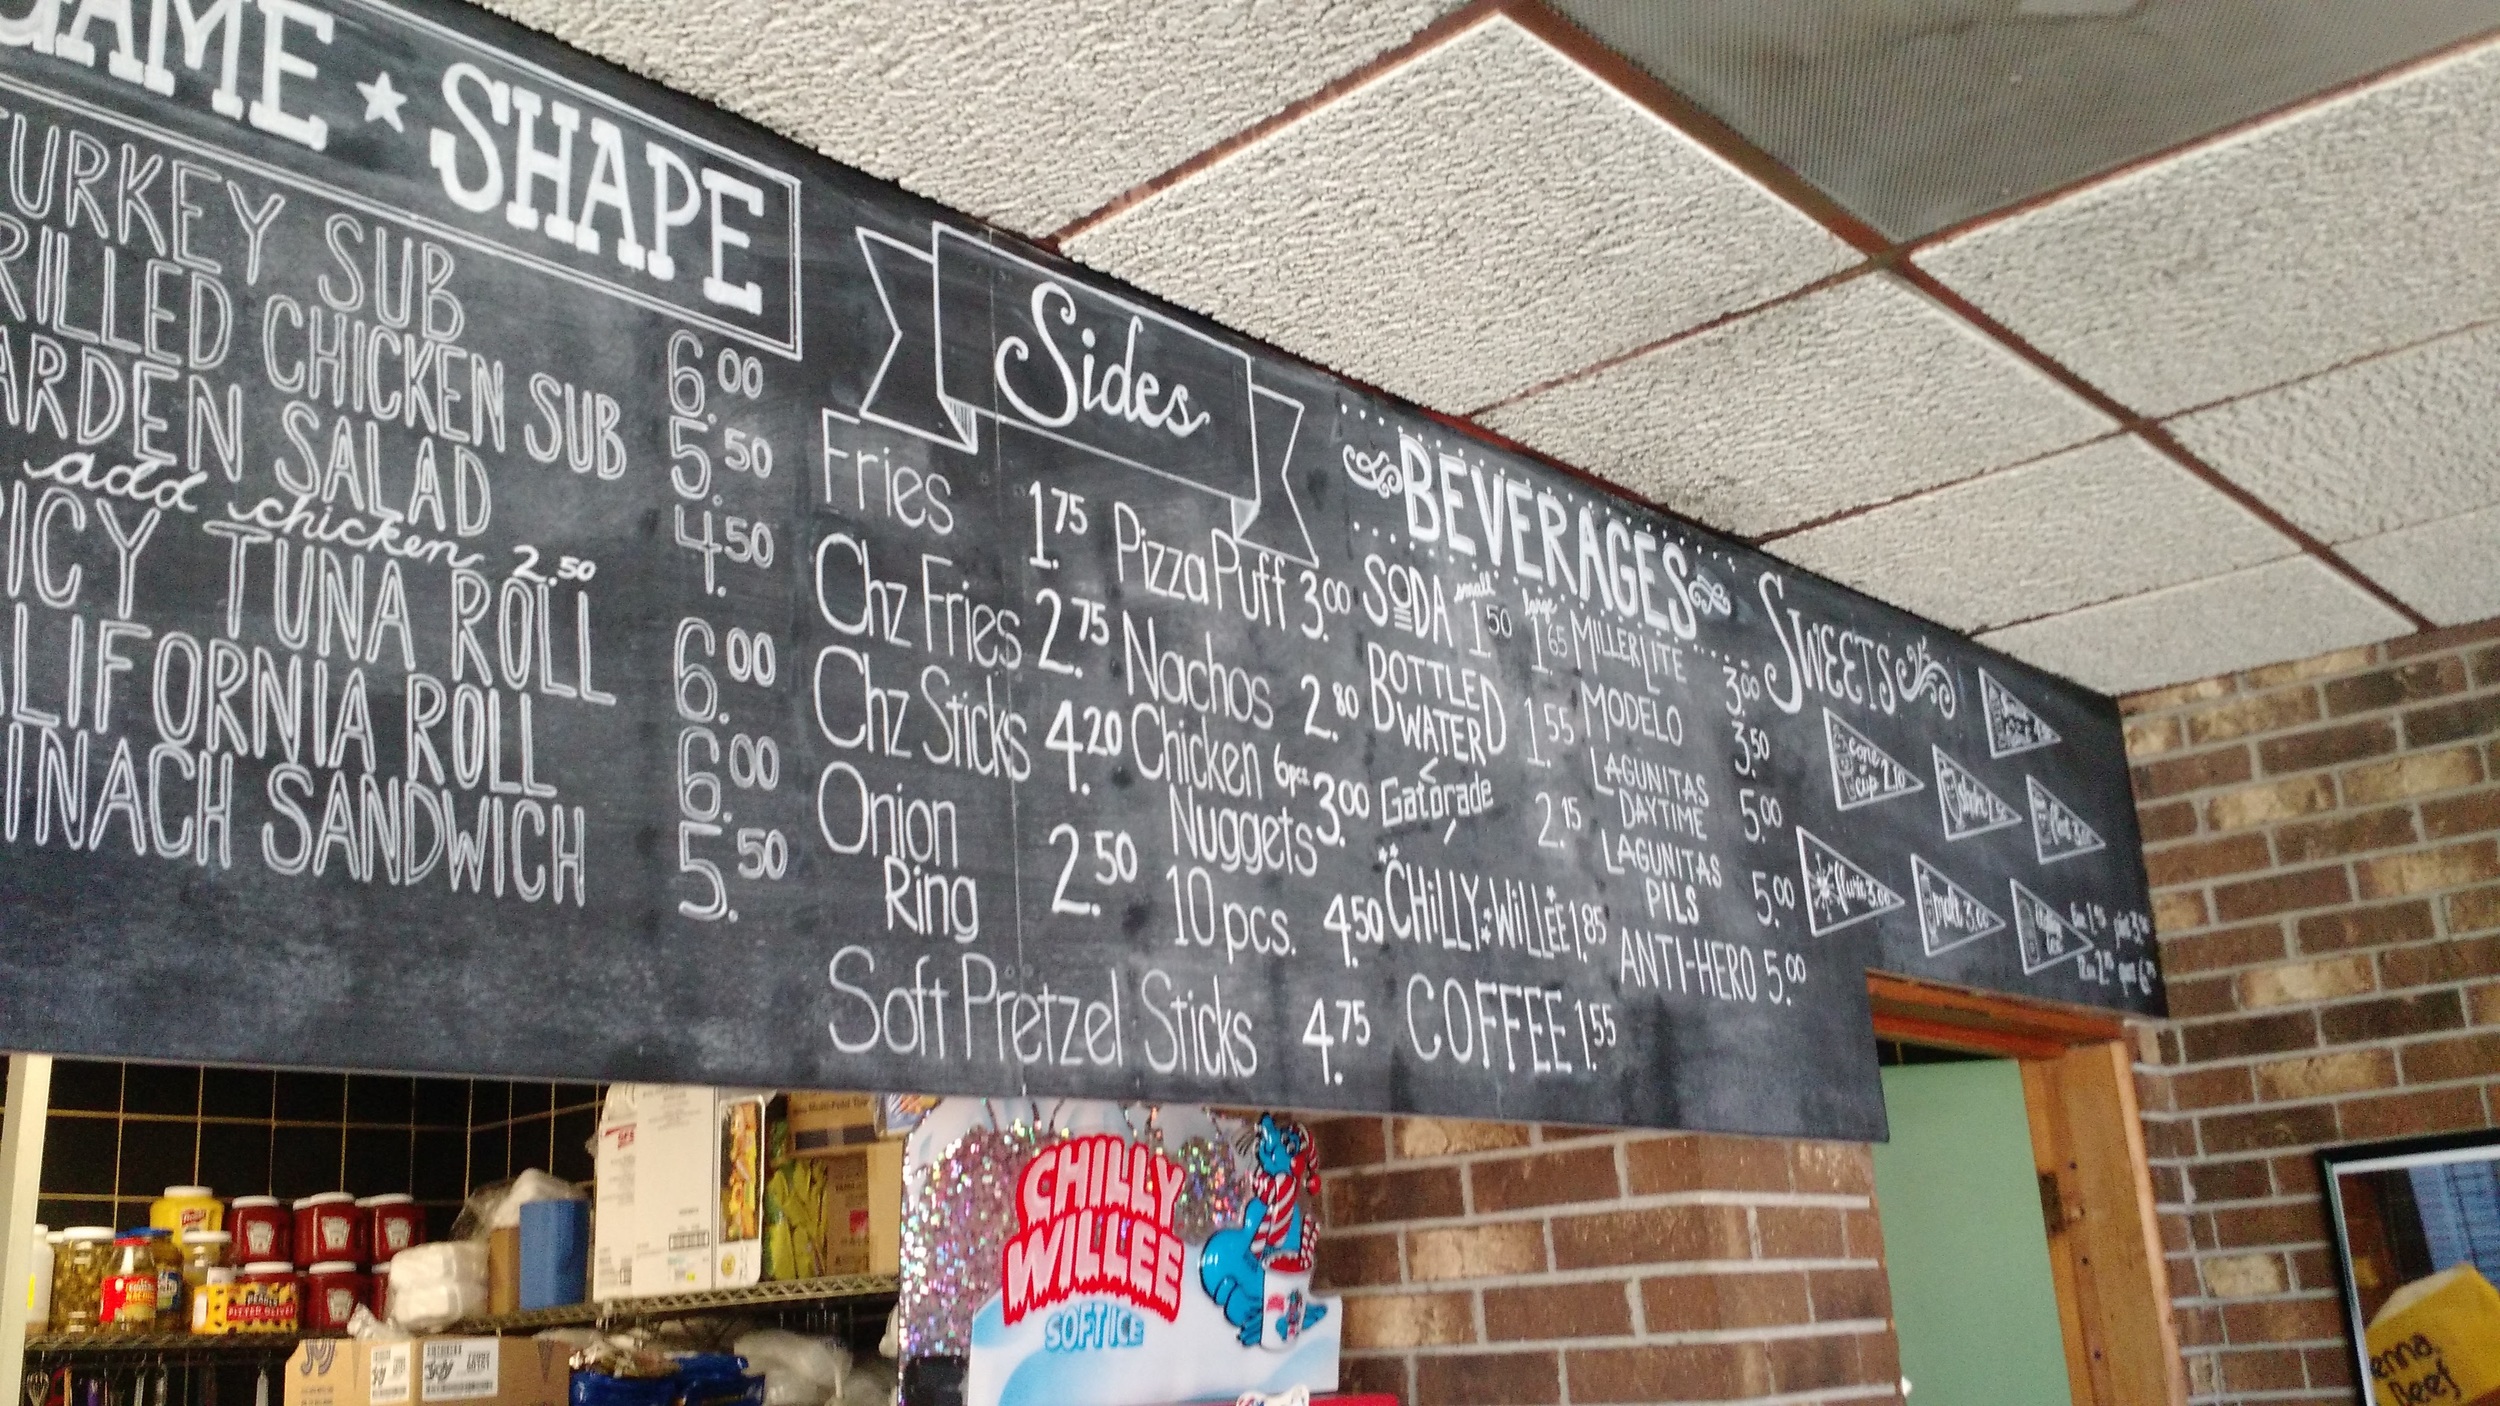 GAME ★ SHAPE
TURKEY SUB 6.00
GRILLED CHICKEN SUB 5.50
GARDEN SALAD 4.50
add chicken 2.50
SPICY TUNA ROLL 6.00
CALIFORNIA ROLL 6.00
SPINACH SANDWICH 5.50
Sides
Fries 1.75
Chz Fries 2.75
Chz Sticks 4.20
Onion
Ring 2.50
Soft Pretzel Sticks 4.75
Pizza Puff 3.00
Nachos 2.80
Chicken 6pcs
Nuggets 3.00
10 pcs. 4.50
BEVERAGES
SODA small 1.50 large 1.65
BOTTLED
WATER 1.55
Gatorade 2.15
CHILLY WILLEE 1.85
COFFEE 1.55
MILLER LITE 3.00
MODELO 3.50
LAGUNITAS
DAYTIME 5.00
LAGUNITAS
PILS 5.00
ANTI-HERO 5.00
SWEETS
cone
cup 2.10
malt 3.00
CHILLY
WILLEE
SOFT ICE
PITTED OLIVES
JOY
JOY
Beef